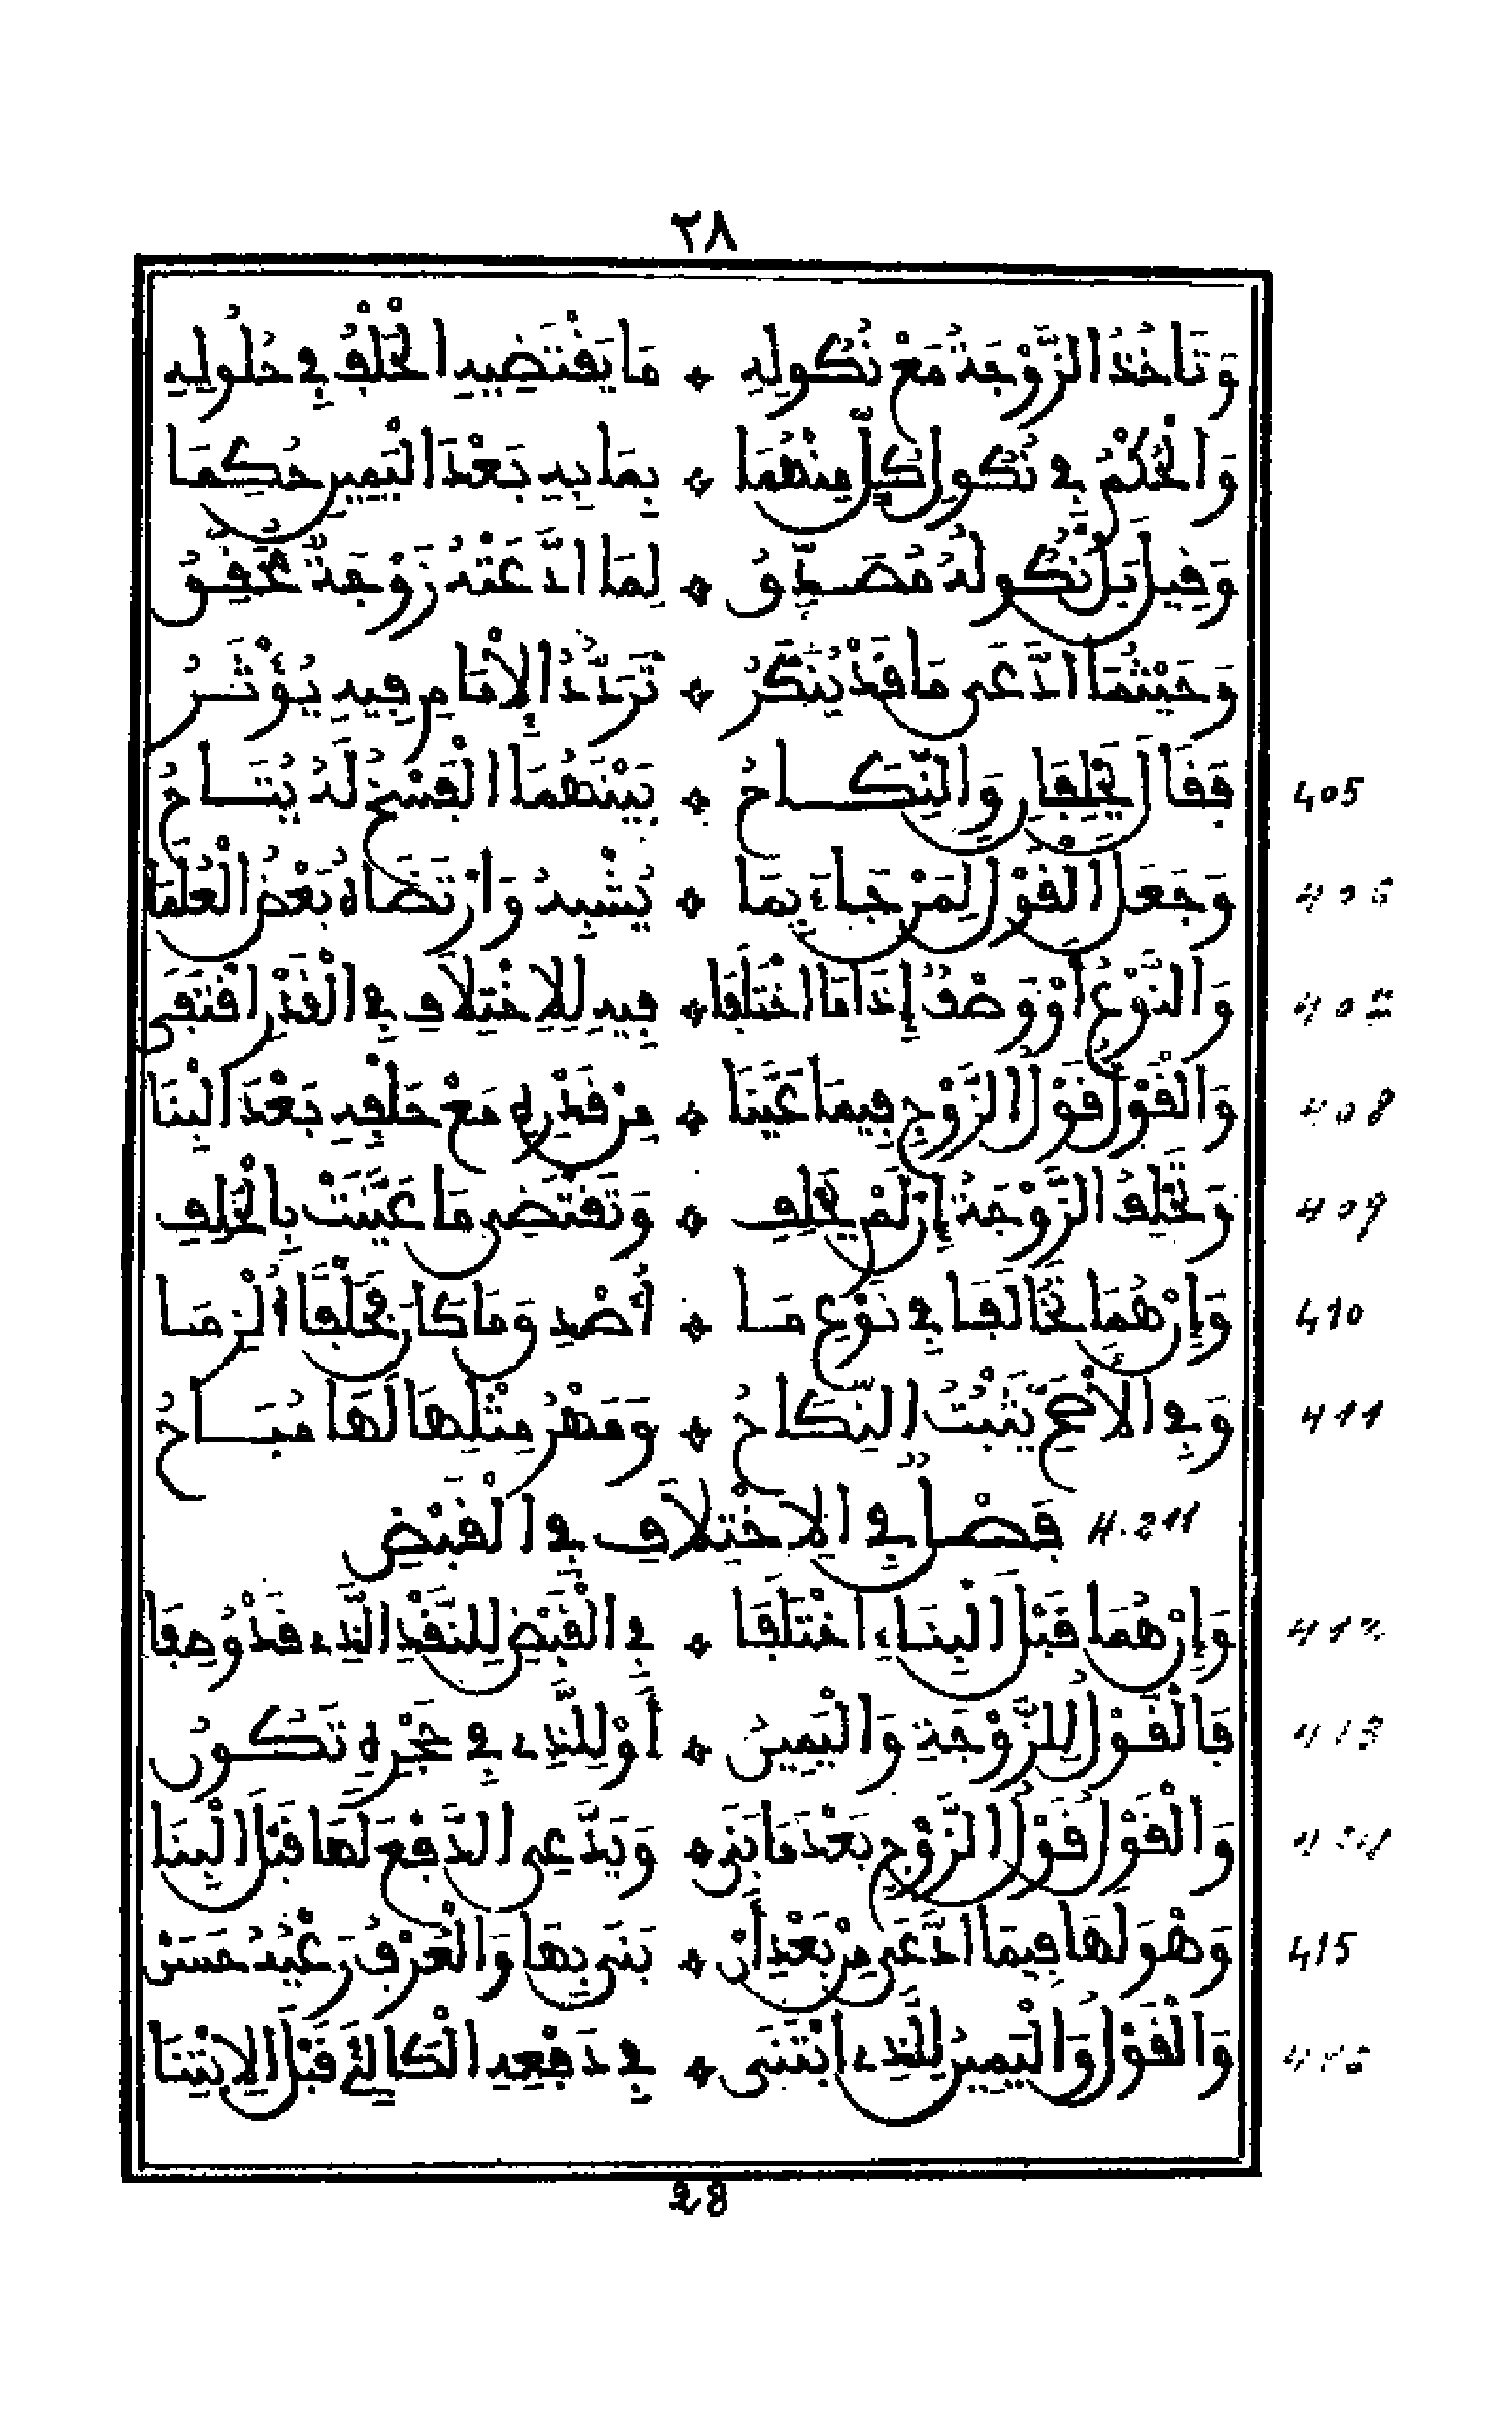 ٢٨
وَتَاخُذُ الزَّوْجَةُ مَعْ نُكُولِهِ ❖ مَا يَقْتَضِيهِ الْحَلْفُ فِي حُلُولِهِ
وَالْحُكْمُ فِي نُكُولِ كُلٍّ مِنْهُمَا ❖ بِمَا بِهِ بَعْدَ الْيَمِينِ حُكِمَا
وَقِيلَ بَلْ نُكُولُهُ مُصَدِّقُ ❖ لِمَا ادَّعَتْهُ زَوْجَةٌ مُحَقِّقُ
وَحَيْثُمَا ادَّعَى مَا قَدْ يُنْكَرُ ❖ تَرَدُّدُ الْإِمَامِ فِيهِ يُؤْثَرُ
405 فَقَالَ يَحْلِفَانِ وَالنِّكَاحُ ❖ بَيْنَهُمَا الْفَسْخُ لَهُ يُتَاحُ
406 وَجَعَلَ الْقَوْلَ لِمَنْ جَاءَ بِمَا ❖ يُشْبِهُ وَارْتَضَاهُ بَعْضُ الْعُلَمَا
وَالنَّوْعُ أَوْ وَصْفٌ إِذَا مَا اخْتَلَفَا ❖ فِيهِ لِلِاخْتِلَافِ فِي الْقَدْرِ اقْتَفَى
408 وَالْقَوْلُ قَوْلُ الزَّوْجِ فِيمَا عَيَّنَا ❖ مِنْ قَدْرِهِ مَعْ حَلْفِهِ بَعْدَ الْبِنَا
409 وَتَحْلِفُ الزَّوْجَةُ إِنْ لَمْ يَحْلِفِ ❖ وَتَقْتَضِي مَا عَيَّنَتْ بِالْحَلِفِ
410 وَإِنْ هُمَا تَخَالَفَا فِي نَوْعِ مَا ❖ أُصْدِقَ مَا كَانَ فَحَلْفًا أُلْزِمَا
411 وَفِي الْأَصَحِّ يَثْبُتُ النِّكَاحُ ❖ وَمَهْرُ مِثْلِهَا لَهَا مُبَاحُ
H. 211 فَصْلٌ فِي الِاخْتِلَافِ فِي الْقَبْضِ
وَإِنْ هُمَا قَبْلَ الْبِنَاءِ اخْتَلَفَا ❖ فِي الْقَبْضِ لِلنَّقْدِ الَّذِي قَدْ وُصِفَا
413 فَالْقَوْلُ لِلزَّوْجَةِ وَالْيَمِينُ ❖ أَوْ لِلَّذِي فِي حَجْرِهِ تَكُونُ
وَالْقَوْلُ قَوْلُ الزَّوْجِ بَعْدَ مَا بَنَى ❖ وَيَدَّعِي الدَّفْعَ لَهَا قَبْلَ الْبِنَا
415 وَهْوَ لَهَا فِيمَا ادَّعَى مِنْ بَعْدِ أَنْ ❖ بَنَى بِهَا وَالْعُرْفُ رَعْيُهُ حَسَنْ
وَالْقَوْلُ وَالْيَمِينُ لِلَّذِي ابْتَنَى ❖ فِي دَفْعِهِ الْكَالِئَ قَبْلَ الِابْتِنَا
28